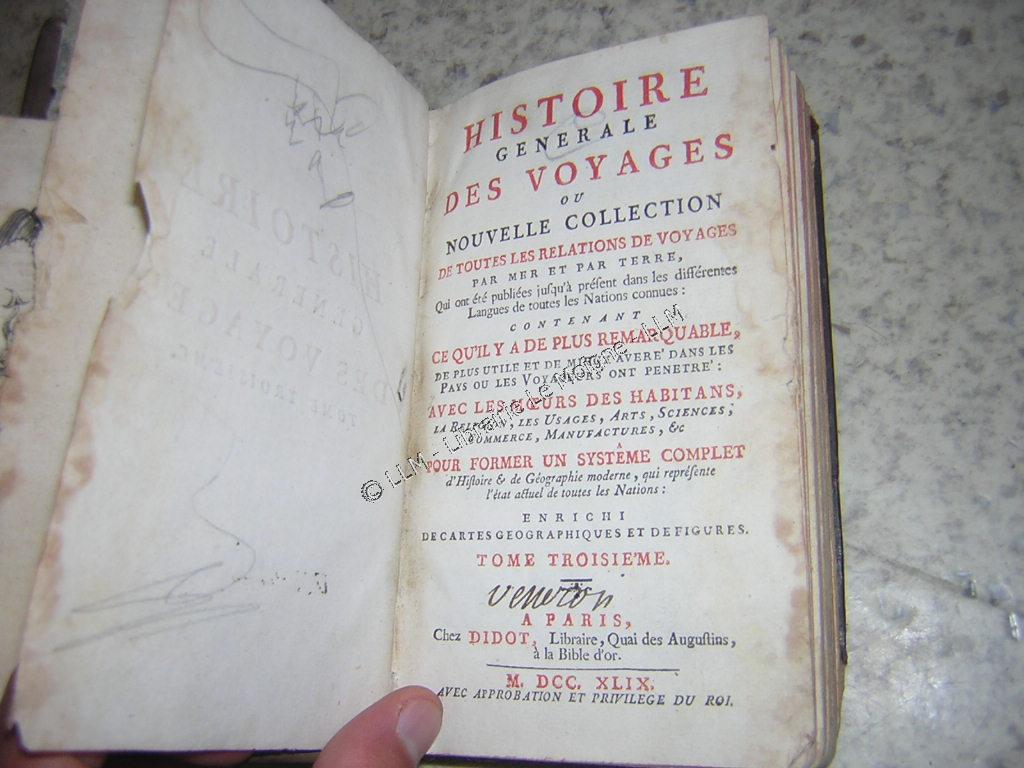 HISTOIRE
GENERALE
DES VOYAGES
OU
NOUVELLE COLLECTION
DE TOUTES LES RELATIONS DE VOYAGES
PAR MER ET PAR TERRE,
Qui ont été publiées jusqu'à préſent dans les différentes
Langues de toutes les Nations connues :
CONTENANT
CE QU'IL Y A DE PLUS REMARQUABLE,
DE PLUS UTILE ET DE MIEUX AVERE' DANS LES
PAYS OU LES VOYAGEURS ONT PENETRE' :
AVEC LES MŒURS DES HABITANS,
LA RELIGION, LES USAGES, ARTS, SCIENCES,
COMMERCE, MANUFACTURES, &c
POUR FORMER UN SYSTÊME COMPLET
d'Hiſtoire & de Géographie moderne, qui repréſente
l'état actuel de toutes les Nations :
ENRICHI
DE CARTES GEOGRAPHIQUES ET DE FIGURES.
TOME TROISIE'ME.
A PARIS,
Chez DIDOT, Libraire, Quai des Auguſtins,
à la Bible d'or.
M. DCC. XLIX.
AVEC APPROBATION ET PRIVILEGE DU ROI.
© LLM - Librairie Le Moisne - LLM